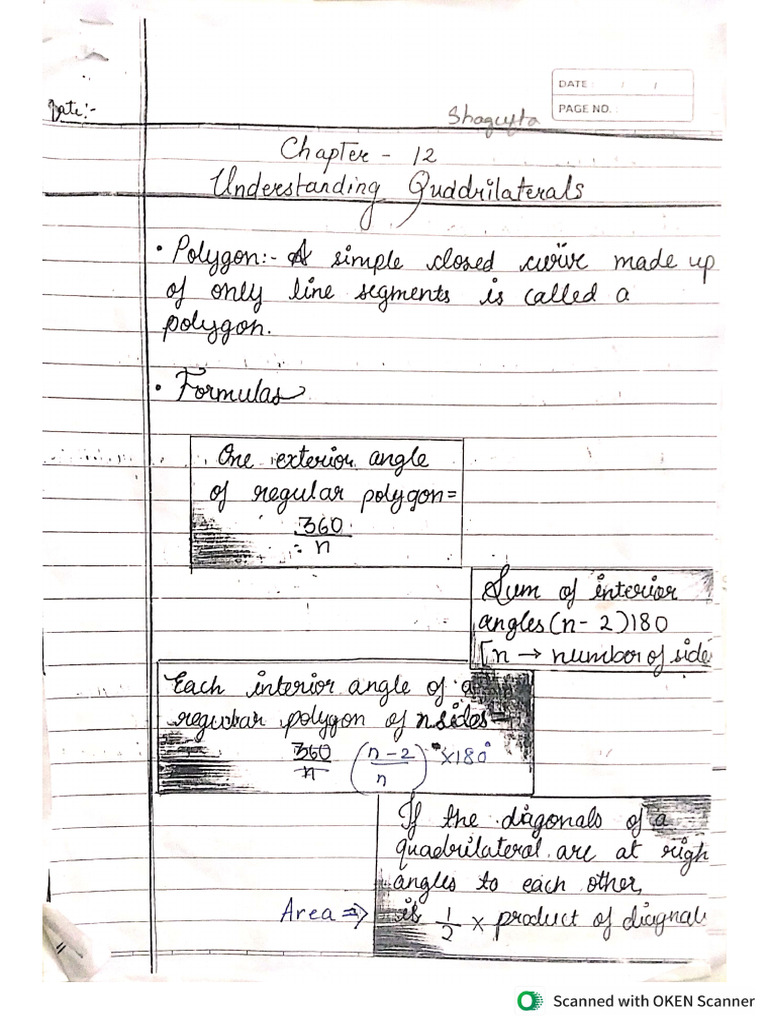 DATE : / /
PAGE NO. :
Date:-
Shagufta
Chapter - 12
Understanding Quddrilaterals
• Polygon:- A simple closed curve made up
of only line segments is called a
polygon.
• Formulas
One exterior angle
of regular polygon=
360
n
Sum of interior
angles (n-2)180
[n → number of side
Each interior angle of a
regular polygon of n sides=
360
n
(n-2
n) ×180°
If the diagonals of a
quadrilateral are at righ
angles to each other,
Area ⇒ is 1/2 × product of diagnal
Scanned with OKEN Scanner